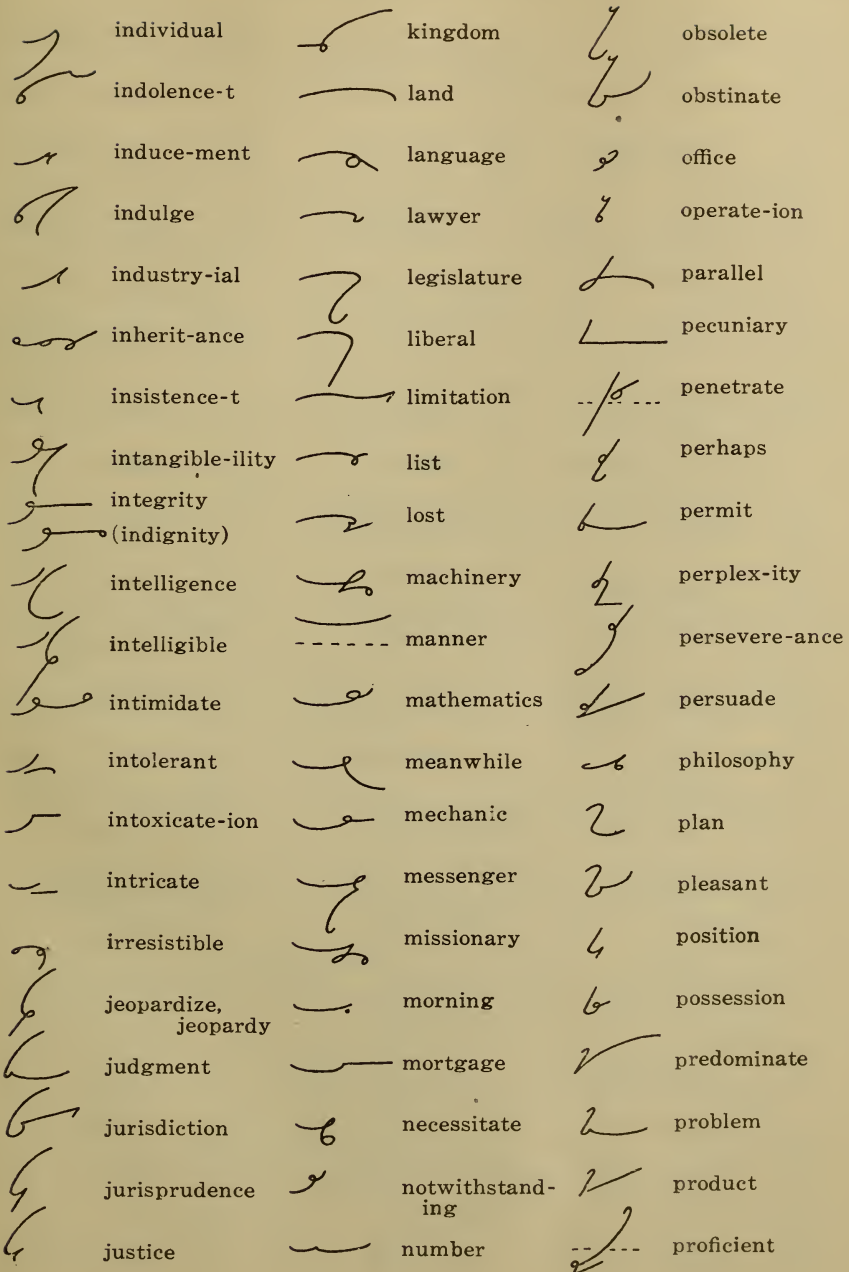 individual
indolence-t
induce-ment
indulge
industry-ial
inherit-ance
insistence-t
intangible-ility
integrity
(indignity)
intelligence
intelligible
intimidate
intolerant
intoxicate-ion
intricate
irresistible
jeopardize,
jeopardy
judgment
jurisdiction
jurisprudence
justice
kingdom
land
language
lawyer
legislature
liberal
limitation
list
lost
machinery
manner
mathematics
meanwhile
mechanic
messenger
missionary
morning
mortgage
necessitate
notwithstand-
ing
number
obsolete
obstinate
office
operate-ion
parallel
pecuniary
penetrate
perhaps
permit
perplex-ity
persevere-ance
persuade
philosophy
plan
pleasant
position
possession
predominate
problem
product
proficient